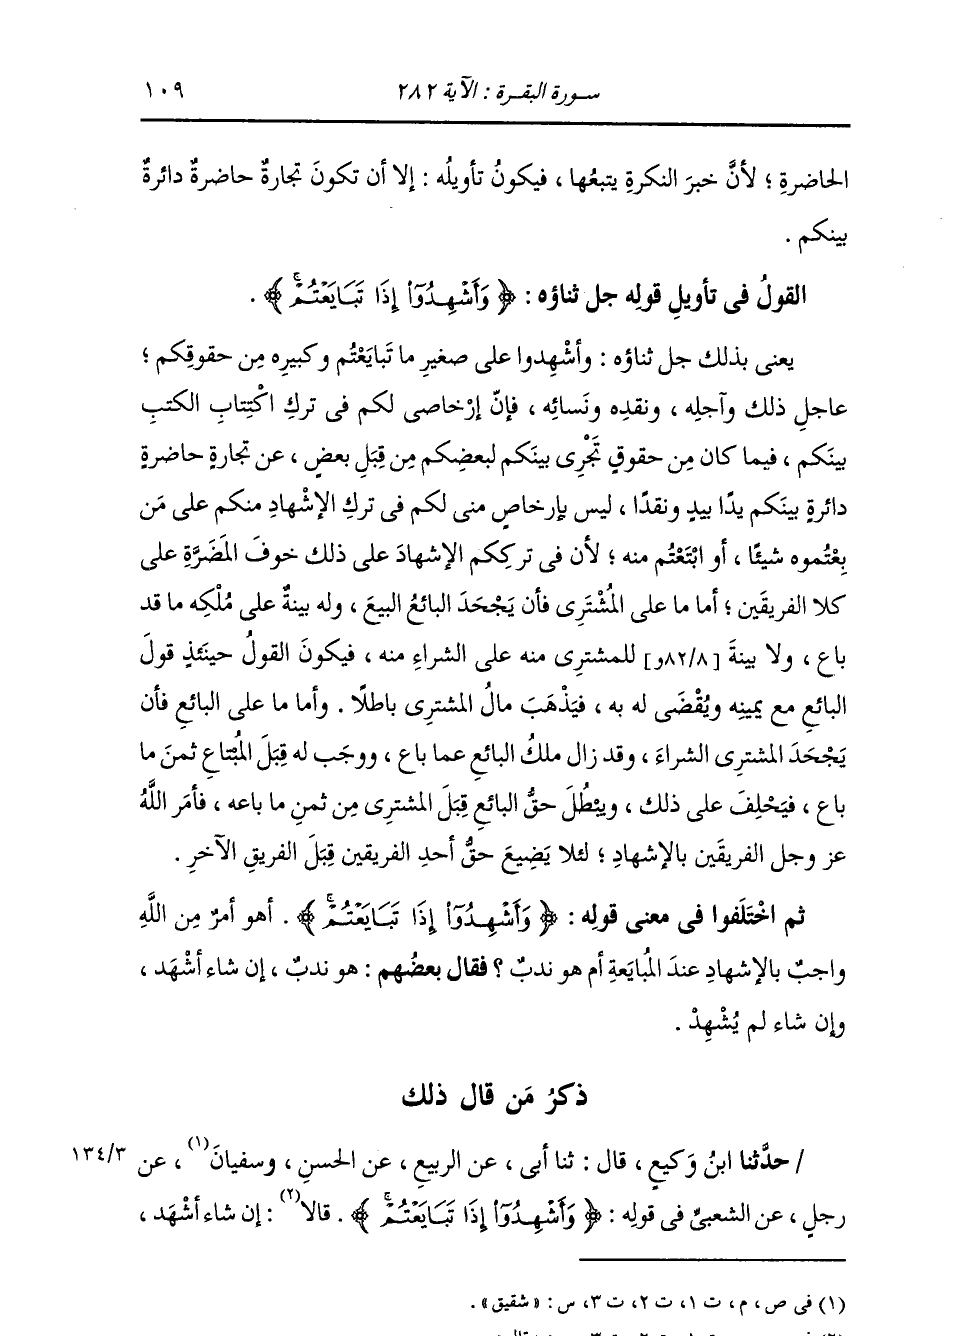 سورة البقرة : الآية ٢٨٢
١٠٩
الحاضرةِ ؛ لأنَّ خبرَ النكرةِ يتبعُها ، فيكونُ تأويلُه : إلا أن تكونَ تجارةٌ حاضرةٌ دائرةٌ
بينكم .
القولُ فى تأويلِ قولِه جل ثناؤه : ﴿ وَأَشْهِدُوٓا۟ إِذَا تَبَايَعْتُمْ ۚ ﴾ .
يعنى بذلك جل ثناؤه : وأشْهِدوا على صغيرِ ما تَبايَعْتُم وكبيرِه مِن حقوقِكم ؛
عاجلِ ذلك وآجلِه ، ونقدِه ونَسائِه ، فإنّ إرْخاصى لكم فى تركِ اكْتِتابِ الكتبِ
بينَكم ، فيما كان مِن حقوقٍ تَجْرِى بينَكم لبعضِكم مِن قِبَلِ بعضٍ ، عن تجارةٍ حاضرةٍ
دائرةٍ بينَكم يدًا بيدٍ ونقدًا ، ليس بإرخاصٍ منى لكم فى تركِ الإشْهادِ منكم على مَن
بِعْتُموه شيئًا ، أو ابْتَعْتُم منه ؛ لأن فى تركِكم الإشهادَ على ذلك خوفَ المَضَرَّةِ على
كلا الفريقَين ؛ أما ما على المُشْتَرِى فأن يَجْحَدَ البائعُ البيعَ ، وله بينةٌ على مُلْكِه ما قد
باع ، ولا بينةَ [٨٢/٨و] للمشترِى منه على الشراءِ منه ، فيكونَ القولُ حينَئذٍ قولَ
البائعِ مع يمينِه ويُقْضَى له به ، فيَذْهَبَ مالُ المشترِى باطلًا . وأما ما على البائعِ فأن
يَجْحَدَ المشترِى الشراءَ ، وقد زال ملكُ البائعِ عما باع ، ووجَب له قِبَلَ المُبْتاعِ ثمنَ ما
باع ، فيَحْلِفَ على ذلك ، ويبْطُلَ حقُّ البائعِ قِبَلَ المشترِى مِن ثمنِ ما باعه ، فأمَر اللَّهُ
عز وجل الفريقَين بالإشهادِ ؛ لئلا يَضِيعَ حقُّ أحدِ الفريقين قِبَلَ الفريقِ الآخرِ .
ثم اخْتَلَفوا فى معنى قولِه : ﴿ وَأَشْهِدُوٓا۟ إِذَا تَبَايَعْتُمْ ۚ ﴾ . أهو أمرٌ مِن اللَّهِ
واجبٌ بالإشهادِ عندَ المُبايَعةِ أم هو ندبٌ ؟ فقال بعضُهم : هو ندبٌ ، إن شاء أشْهَد ،
وإن شاء لم يُشْهِدْ .
ذكرُ مَن قال ذلك
/ حدَّثنا ابنُ وَكيعٍ ، قال : ثنا أبى ، عن الربيعِ ، عن الحسنِ ، وسفيانَ(١) ، عن
١٣٤/٣
رجلٍ ، عن الشعبىِّ فى قولِه : ﴿ وَأَشْهِدُوٓا۟ إِذَا تَبَايَعْتُمْ ۚ ﴾ . قالا(٢) : إن شاء أشْهَد ،
(١) فى ص ، م ، ت ١، ت ٢، ت ٣، س : «شقيق» .